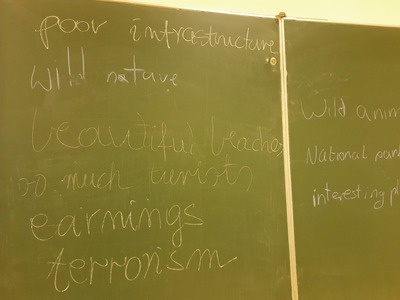 poor infrastructure
wild nature
beautiful beaches
so much turists
earnings
terrorism
Wild anim
National par
interesting pl